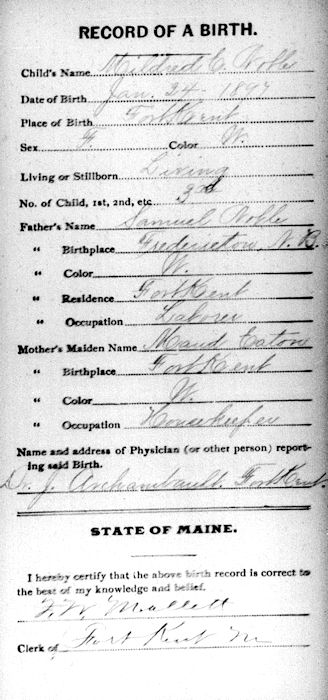 RECORD OF A BIRTH.
Child's Name Mildred C. Noble
Date of Birth Jan. 24. 1897
Place of Birth Fort Kent
Sex F. Color W.
Living or Stillborn Living
No. of Child, 1st, 2nd, etc. 3rd
Father's Name Samuel Noble
" Birthplace Fredericton N. B.
" Color W.
" Residence Fort Kent
" Occupation Laborer
Mother's Maiden Name Maud Eaton
" Birthplace Fort Kent
" Color W.
" Occupation Housekeeper
Name and address of Physician (or other person) report-
ing said Birth.
Dr. J. Archambault Fort Kent.
STATE OF MAINE.
I hereby certify that the above birth record is correct to
the best of my knowledge and belief.
Mallett
Clerk of Fort Kent Me